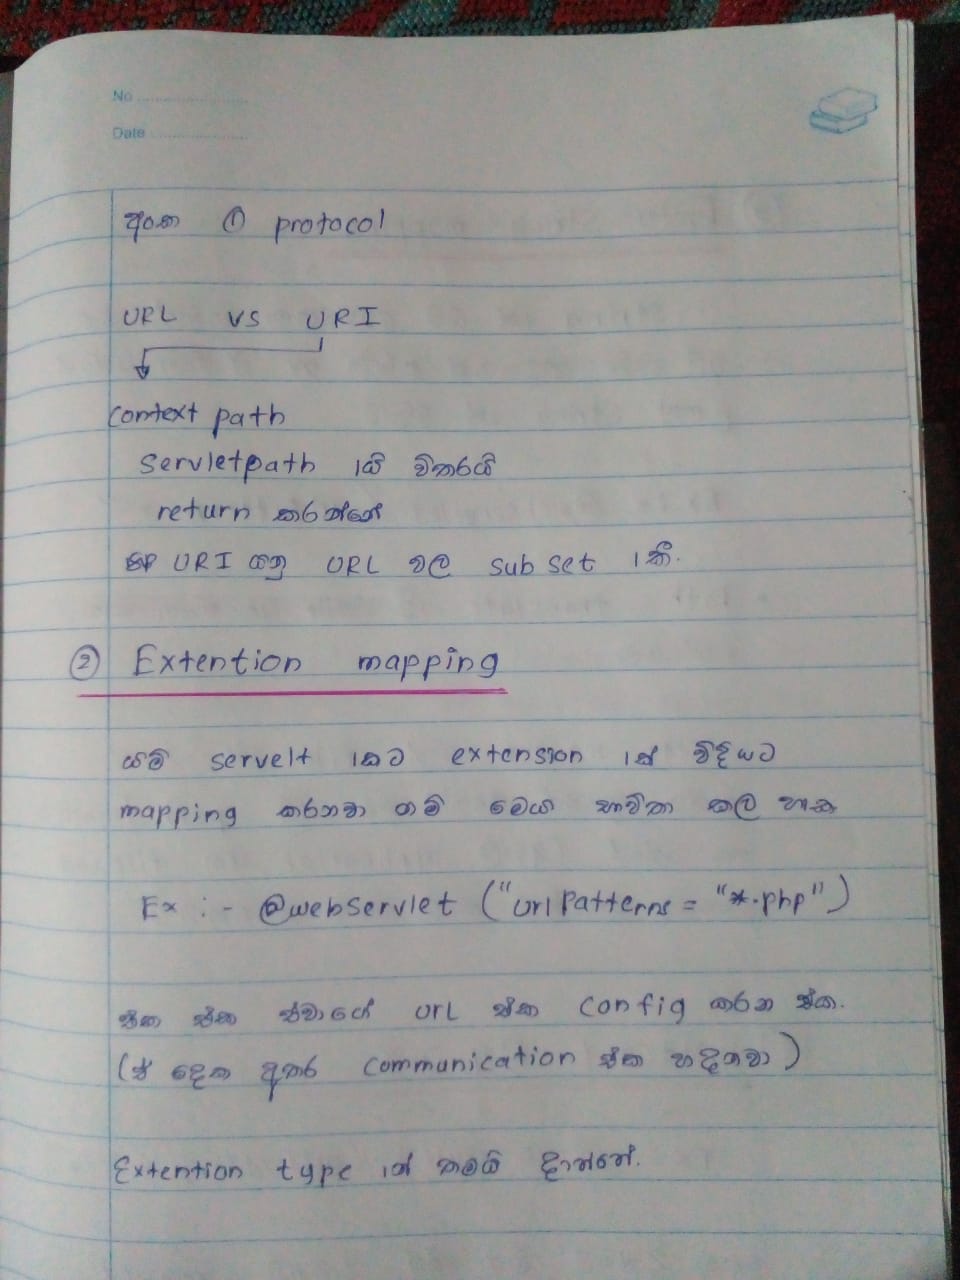 No
Date
අංක ① protocol
URL vs URI
context path
servletpath යි විතරයි
return කරන්නේ
URI යනු URL වල subset කි.
② Extention mapping
යම් servelt කට extension ක් විදියට
mapping කරනවා නම් මෙය භාවිතා කල හැක
Ex :- @webservlet ("urlPatterns = "*.php")
එක එක ඒවාගේ url එක config කරන එක.
(ඒ දෙක අතර communication එක හදනවා)
Extention type ක් තමයි දාන්නේ.